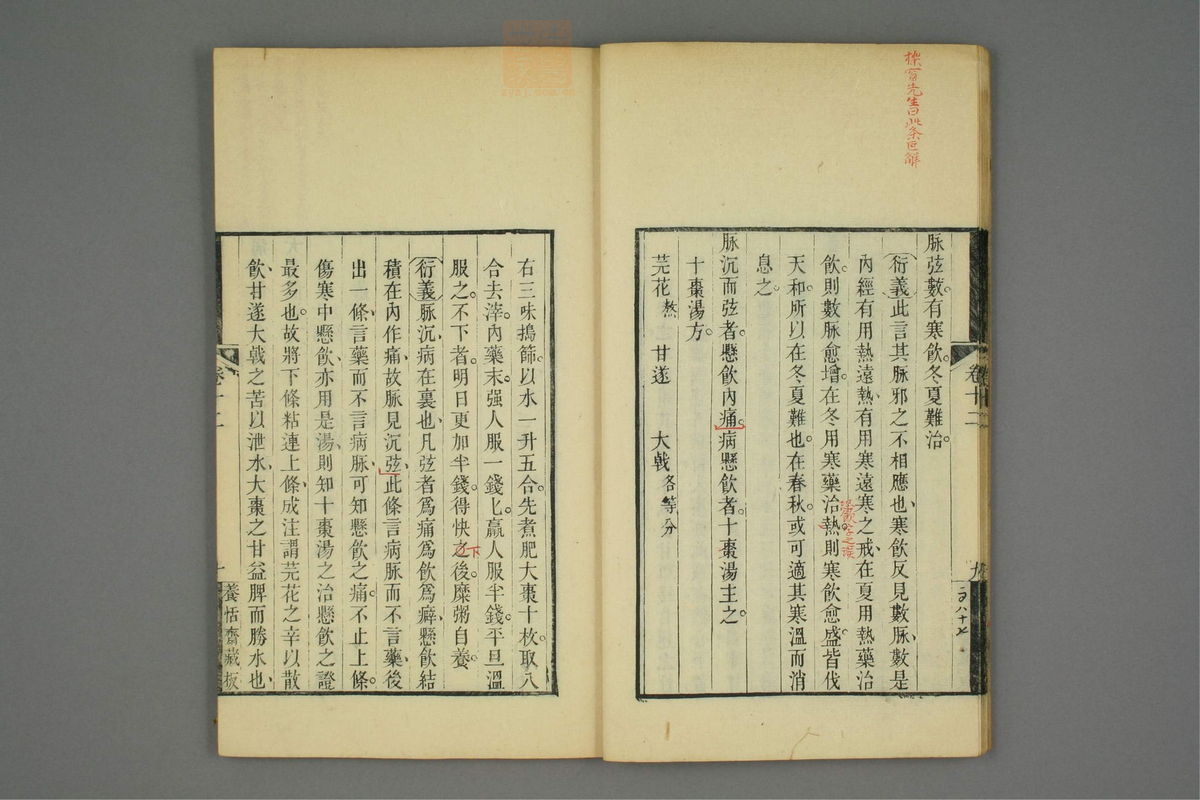 櫟窗先生曰此条叵解
脉弦數。有寒飲。冬夏難治。
衍義此言其脉邪之不相應也、寒飲反見數脉、數是
內經有用熱遠熱、有用寒遠寒之戒、在夏用熱藥治
飲。則數脉愈增。在冬用寒藥治熱。則寒飲愈盛。皆伐
天和。所以在冬夏難也。在春秋。或可適其寒溫而消
息之。
脉沉而弦者。懸飲內痛。病懸飲者。十棗湯主之。
十棗湯方。
芫花熬 甘遂 大戟各等分
卷十二
九
二百八十七
右三味搗篩。以水一升五合。先煮肥大棗十枚。取八
合去滓。內藥末。强人服一錢匕。羸人服半錢。平旦溫
服之。不下者。明日更加半錢。得快之後。糜粥自養。
下
衍義脉沉、病在裏也、凡弦者爲痛爲飲爲癖、懸飲結
積在內作痛、故脉見沉弦、此條言病脉而不言藥、後
出一條、言藥而不言病脉、可知懸飲之痛。不止上條。
傷寒中懸飲、亦用是湯、則知十棗湯之治懸飲之證
最多也。故將下條粘連上條、成注謂芫花之辛以散
飲、甘遂大戟之苦以泄水、大棗之甘益脾而勝水也、
卷十二
十
養恬齋藏板